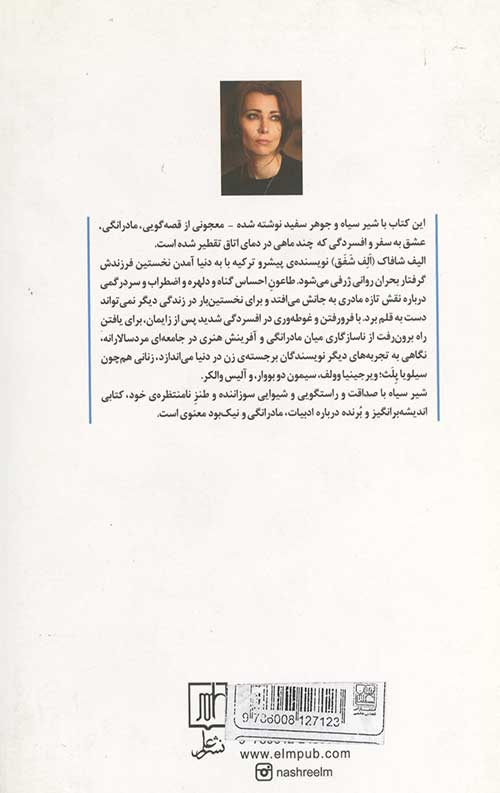 این کتاب با شیر سیاه و جوهر سفید نوشته شده - معجونی از قصه‌گویی، مادرانگی،
عشق به سفر و افسردگی که چند ماهی در دمای اتاق تقطیر شده است.
الیف شافاک (اَلِف شَفَق) نویسنده‌ی پیشرو ترکیه با به دنیا آمدن نخستین فرزندش
گرفتار بحران روانی ژرفی می‌شود. طاعونِ احساس گناه و دلهره و اضطراب و سردرگمی
درباره نقش تازه مادری به جانش می‌افتد و برای نخستین‌بار در زندگی دیگر نمی‌تواند
دست به قلم برد. با فرورفتن و غوطه‌وری در افسردگی شدید پس از زایمان، برای یافتن
راه برون‌رفت از ناسازگاری میان مادرانگی و آفرینش هنری در جامعه‌ای مردسالارانه،
نگاهی به تجربه‌های دیگر نویسندگان برجسته‌ی زن در دنیا می‌اندازد، زنانی هم‌چون
سیلویا پِلَث؛ ویرجینیا وولف، سیمون دوبووار، و آلیس والکر.
شیر سیاه با صداقت و راستگویی و شیوایی سوزاننده و طنزِ نامنتظره‌ی خود، کتابی
اندیشه‌برانگیز و بُرنده درباره ادبیات، مادرانگی و نیک‌بود معنوی است.
9 786008 127123
نشر علم
www.elmpub.com
nashreelm